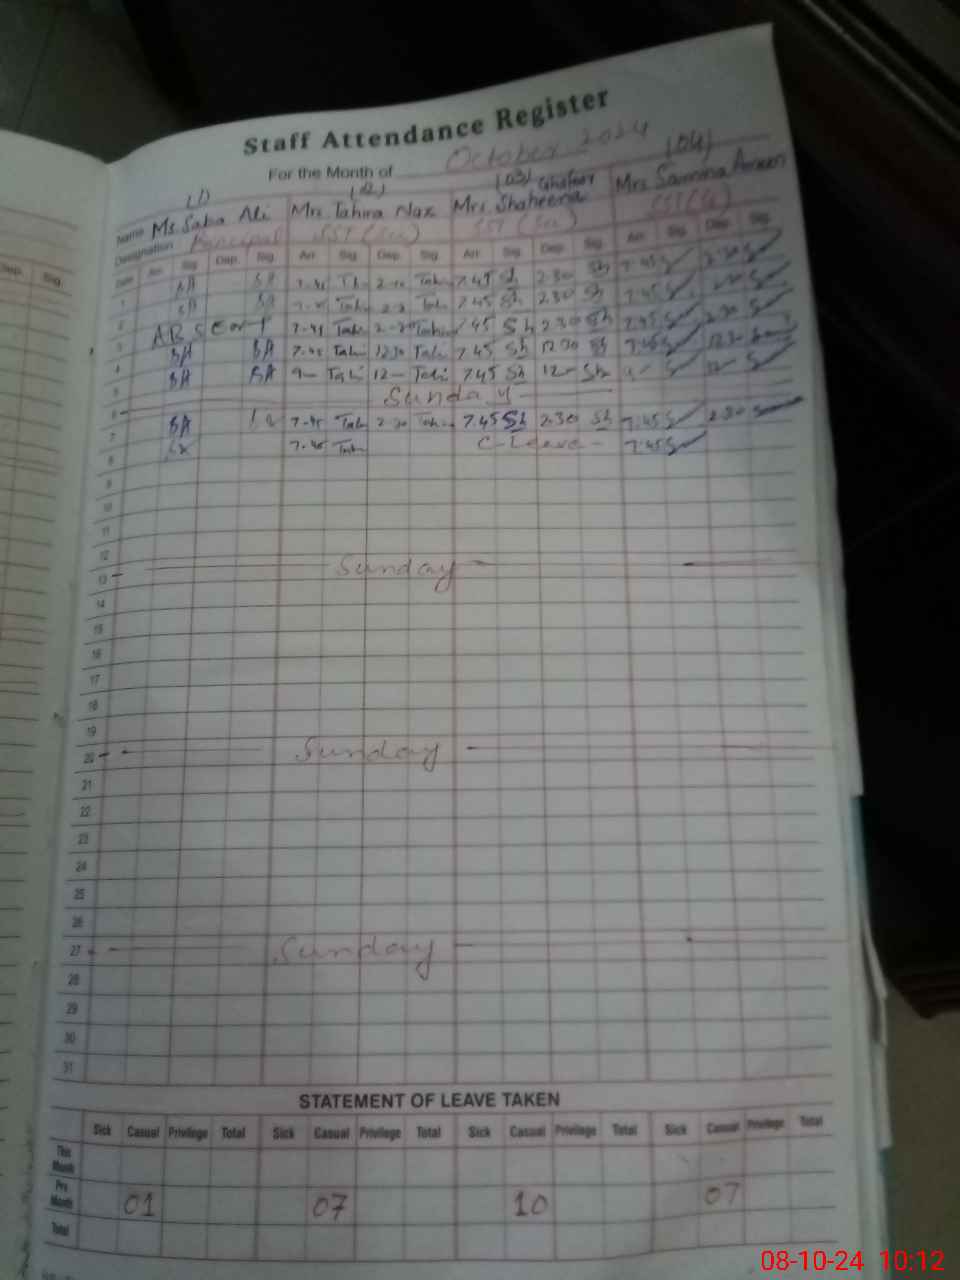 Staff Attendance Register
For the Month of October 2024
(1) (02) (03) (04)
Name Ms. Saba Ali Mrs. Tahira Naz Mrs. Shaheena Ghafoor Mrs. Samina Ameen
Designation Principal SST (Sc) SST (Sc) SST (G)
Date Arr. Sig. Dep. Sig. Arr. Sig. Dep. Sig. Arr. Sig. Dep. Sig. Arr. Sig. Dep. Sig.
1 SA SA 7.45 Sh 2.30 Sh 7.45
2 SA SA 7.45 Sh 2.30 Sh 7.45
3 ABSENT 7.45 Tah 2.30 Tah 7.45 Sh 2.30 Sh 7.45 2.30
4 SA SA 7.45 Tah 12.30 Tah 7.45 Sh 12.30 Sh 7.45 12.30
5 SA SA 9 Tah 12 Tah 7.45 Sh 12 Sh 9 12
6 Sunday
7 SA 7.45 Tah 2.30 Tah 7.45 Sh 2.30 Sh 7.45 2.30
8 7.45 Tah C-Leave 7.45
9
10
11
12
13 Sunday
14
15
16
17
18
19
20 Sunday
21
22
23
24
25
26
27 Sunday
28
29
30
31
STATEMENT OF LEAVE TAKEN
Sick Casual Privilege Total Sick Casual Privilege Total Sick Casual Privilege Total Sick Casual Privilege Total
This Month
Pre Month 01 07 10 07
Total
08-10-24 10:12